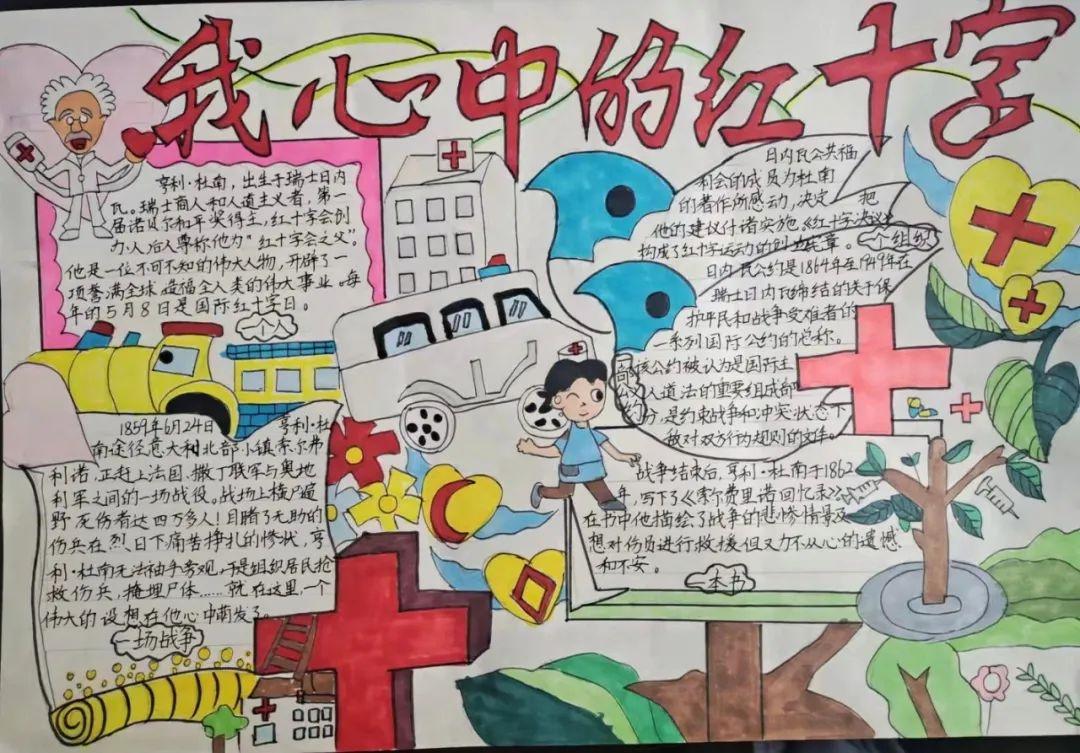 我心中的红十字
亨利·杜南，出生于瑞士日内
瓦。瑞士商人和人道主义者，第一
届诺贝尔和平奖得主，红十字会创
办人，后人尊称他为“红十字会之父”。
他是一位不可不知的伟大人物，开辟了一
项誉满全球，造福全人类的伟大事业。每
年的5月8日是国际红十字日。
一个人
1859年6月24日，亨利·杜
南途径意大利北部小镇索尔弗
利诺，正赶上法国、撒丁联军与奥地
利军之间的一场战役。战场上横尸遍
野，死伤者达四万多人！目睹了无助的
伤兵在烈日下痛苦挣扎的惨状，亨
利·杜南无法袖手旁观，于是组织居民抢
救伤兵，掩埋尸体……就在这里，一个
伟大的设想在他心中萌发了。
一场战争
日内瓦公共福
利会的成员为杜南
的著作所感动，决定把
他的建议付诸实施。《红十字决议》
构成了红十字运动的创立宪章。
一个组织
日内瓦公约是1864年至1949年在
瑞士日内瓦缔结的关于保
护平民和战争受难者的
一系列国际公约的总称。
该公约被认为是国际主
义人道法的重要组成部
分，是约束战争和冲突状态下
敌对双方行为规则的文件。
战争结束后，亨利·杜南于1862
年，写下了《索尔费里诺回忆录》，
在书中他描绘了战争的悲惨情景及
想对伤员进行救援但又力不从心的遗憾
和不安。
一本书